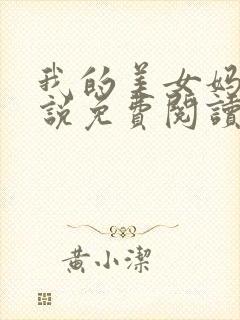 我的美女妈
說免費閱讀
黃小潔